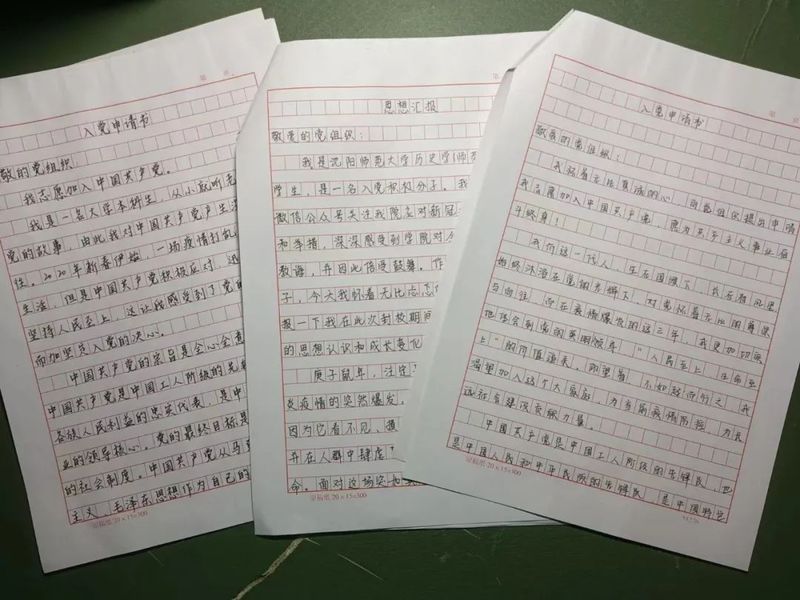 入党申请书
敬的党组织
我志愿加入中国共产党。
我是一名大学本科生，从小就听
党的故事，由此我对中国共产党产生
往。2020年新春伊始，一场疫情打乱
生活，但是中国共产党积极应对，迅
坚持人民至上，这让我感受到了党的
而加坚定入党的决心。
中国共产党的宗旨是全心全意
中国共产党是中国工人阶级的先
各族人民利益的忠实代表，是中
业的领导核心。党的最终目标是
的社会制度。中国共产党以马
主义、毛泽东思想作为自己的
原稿纸20×15=300
思想汇报
敬爱的党组织：
我是沈阳师范大学历史学(师
学生，是一名入党积极分子。我
微信公众号关注我院志对新冠
和举措，深深感受到学院对
教诲，并因此倍受鼓舞。作
子，今天我怀着无比
报一下我在此次封校期间
的思想认识和成长变化
庚子鼠年，注定
炎疫情的突然爆发，
因为它看不见、摸
并在人群中肆虐
命。面对这场突
原稿纸20×15=300
入党申请书
敬爱的党组织：
我怀着无比真诚的心，向党组织提出申请
我志愿加入中国共产党，愿为共产主义事业奋
斗终身！
我们这一代人，生在国旗下，长在春风里
始终沐浴在党的光辉下，对党怀着无比的尊崇
与向往，而在疫情爆发的这三年，我更加切实
地体会到党的英明领导，“人民至上，生命至
上”的价值追求，仰望着，不如躬而行之，我
渴望加入这个大家庭，为当前疫情防控，为长
远社会建设贡献力量。
中国共产党是中国工人阶级的先锋队，也
是中国人民和中华民族的先锋队，是中国特色